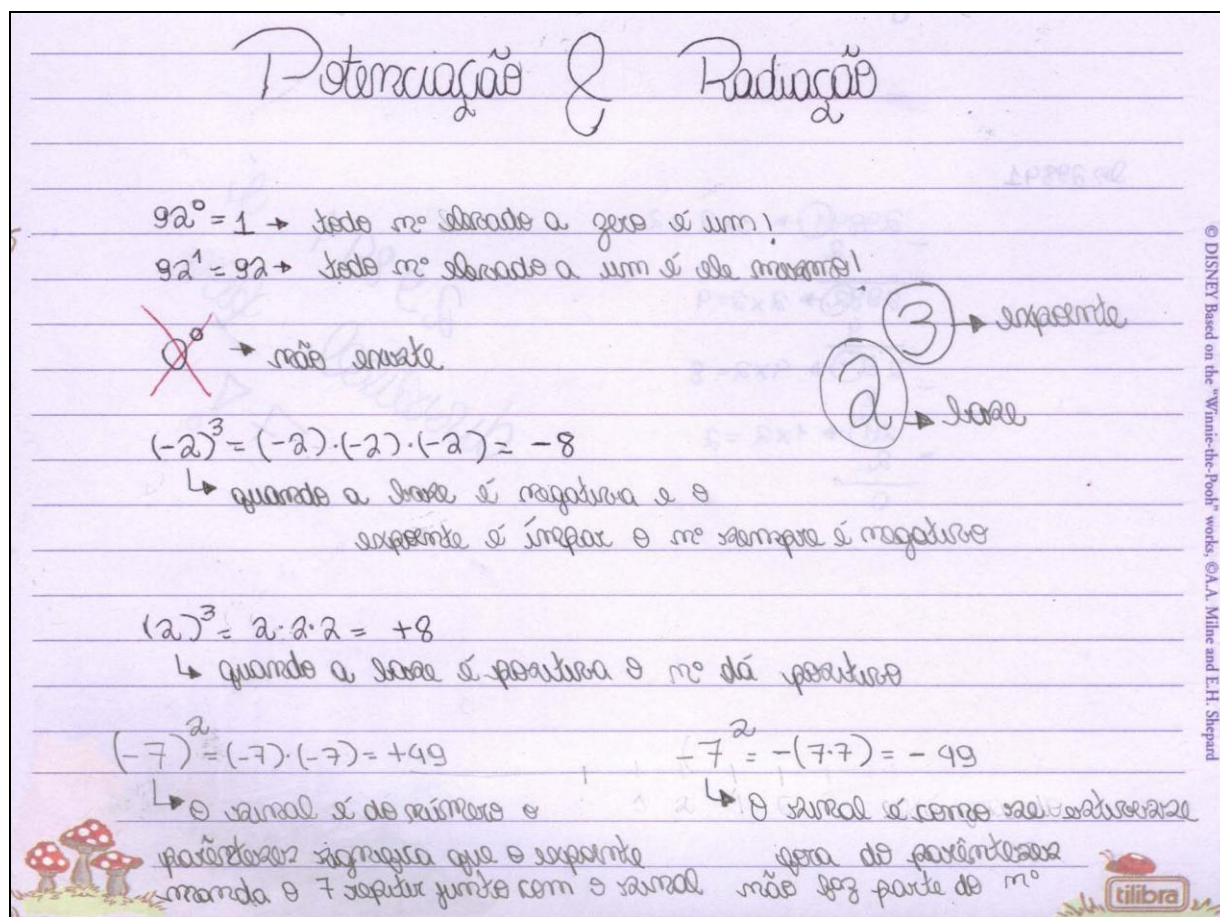 Potenciação & Radiação
92⁰ = 1 → todo nº elevado a zero é um!
92¹ = 92 → todo nº elevado a um é ele mesmo!
3 → expoente
0⁰ → não existe
2 → base
(-2)³ = (-2)·(-2)·(-2) = -8
↳ quando a base é negativa e o
expoente é ímpar o nº sempre é negativo
(2)³ = 2·2·2 = +8
↳ quando a base é positiva o nº dá positivo
(-7)² = (-7)·(-7) = +49
↳ O sinal é do número o
parênteses significa que o expoente
manda o 7 repetir junto com o sinal
-7² = -(7·7) = -49
↳ O sinal é como se estivesse
fora do parênteses
não faz parte do nº
tilibra
© DISNEY Based on the "Winnie-the-Pooh" works, ©A.A. Milne and E.H. Shepard